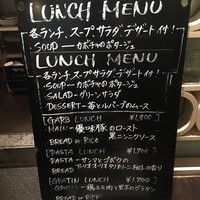 LUNCH MENU
各ランチ、スープサラダ デザート付!
SOUP ― カボチャのポタージュ
LUNCH MENU
各ランチ、スープサラダ デザート付!
SOUP ― カボチャのポタージュ
SALAD ― グリーンサラダ
DESSERT ― 苺とルバーブのムース
GARB LUNCH
MAIN ― 優味豚のロースト
黒ニンニクソース
BREAD or RICE
PASTA LUNCH ¥1300
PASTA ― サンマとゴボウの
BREAD
GRATIN LUNCH ¥1300
BREAD or RICE